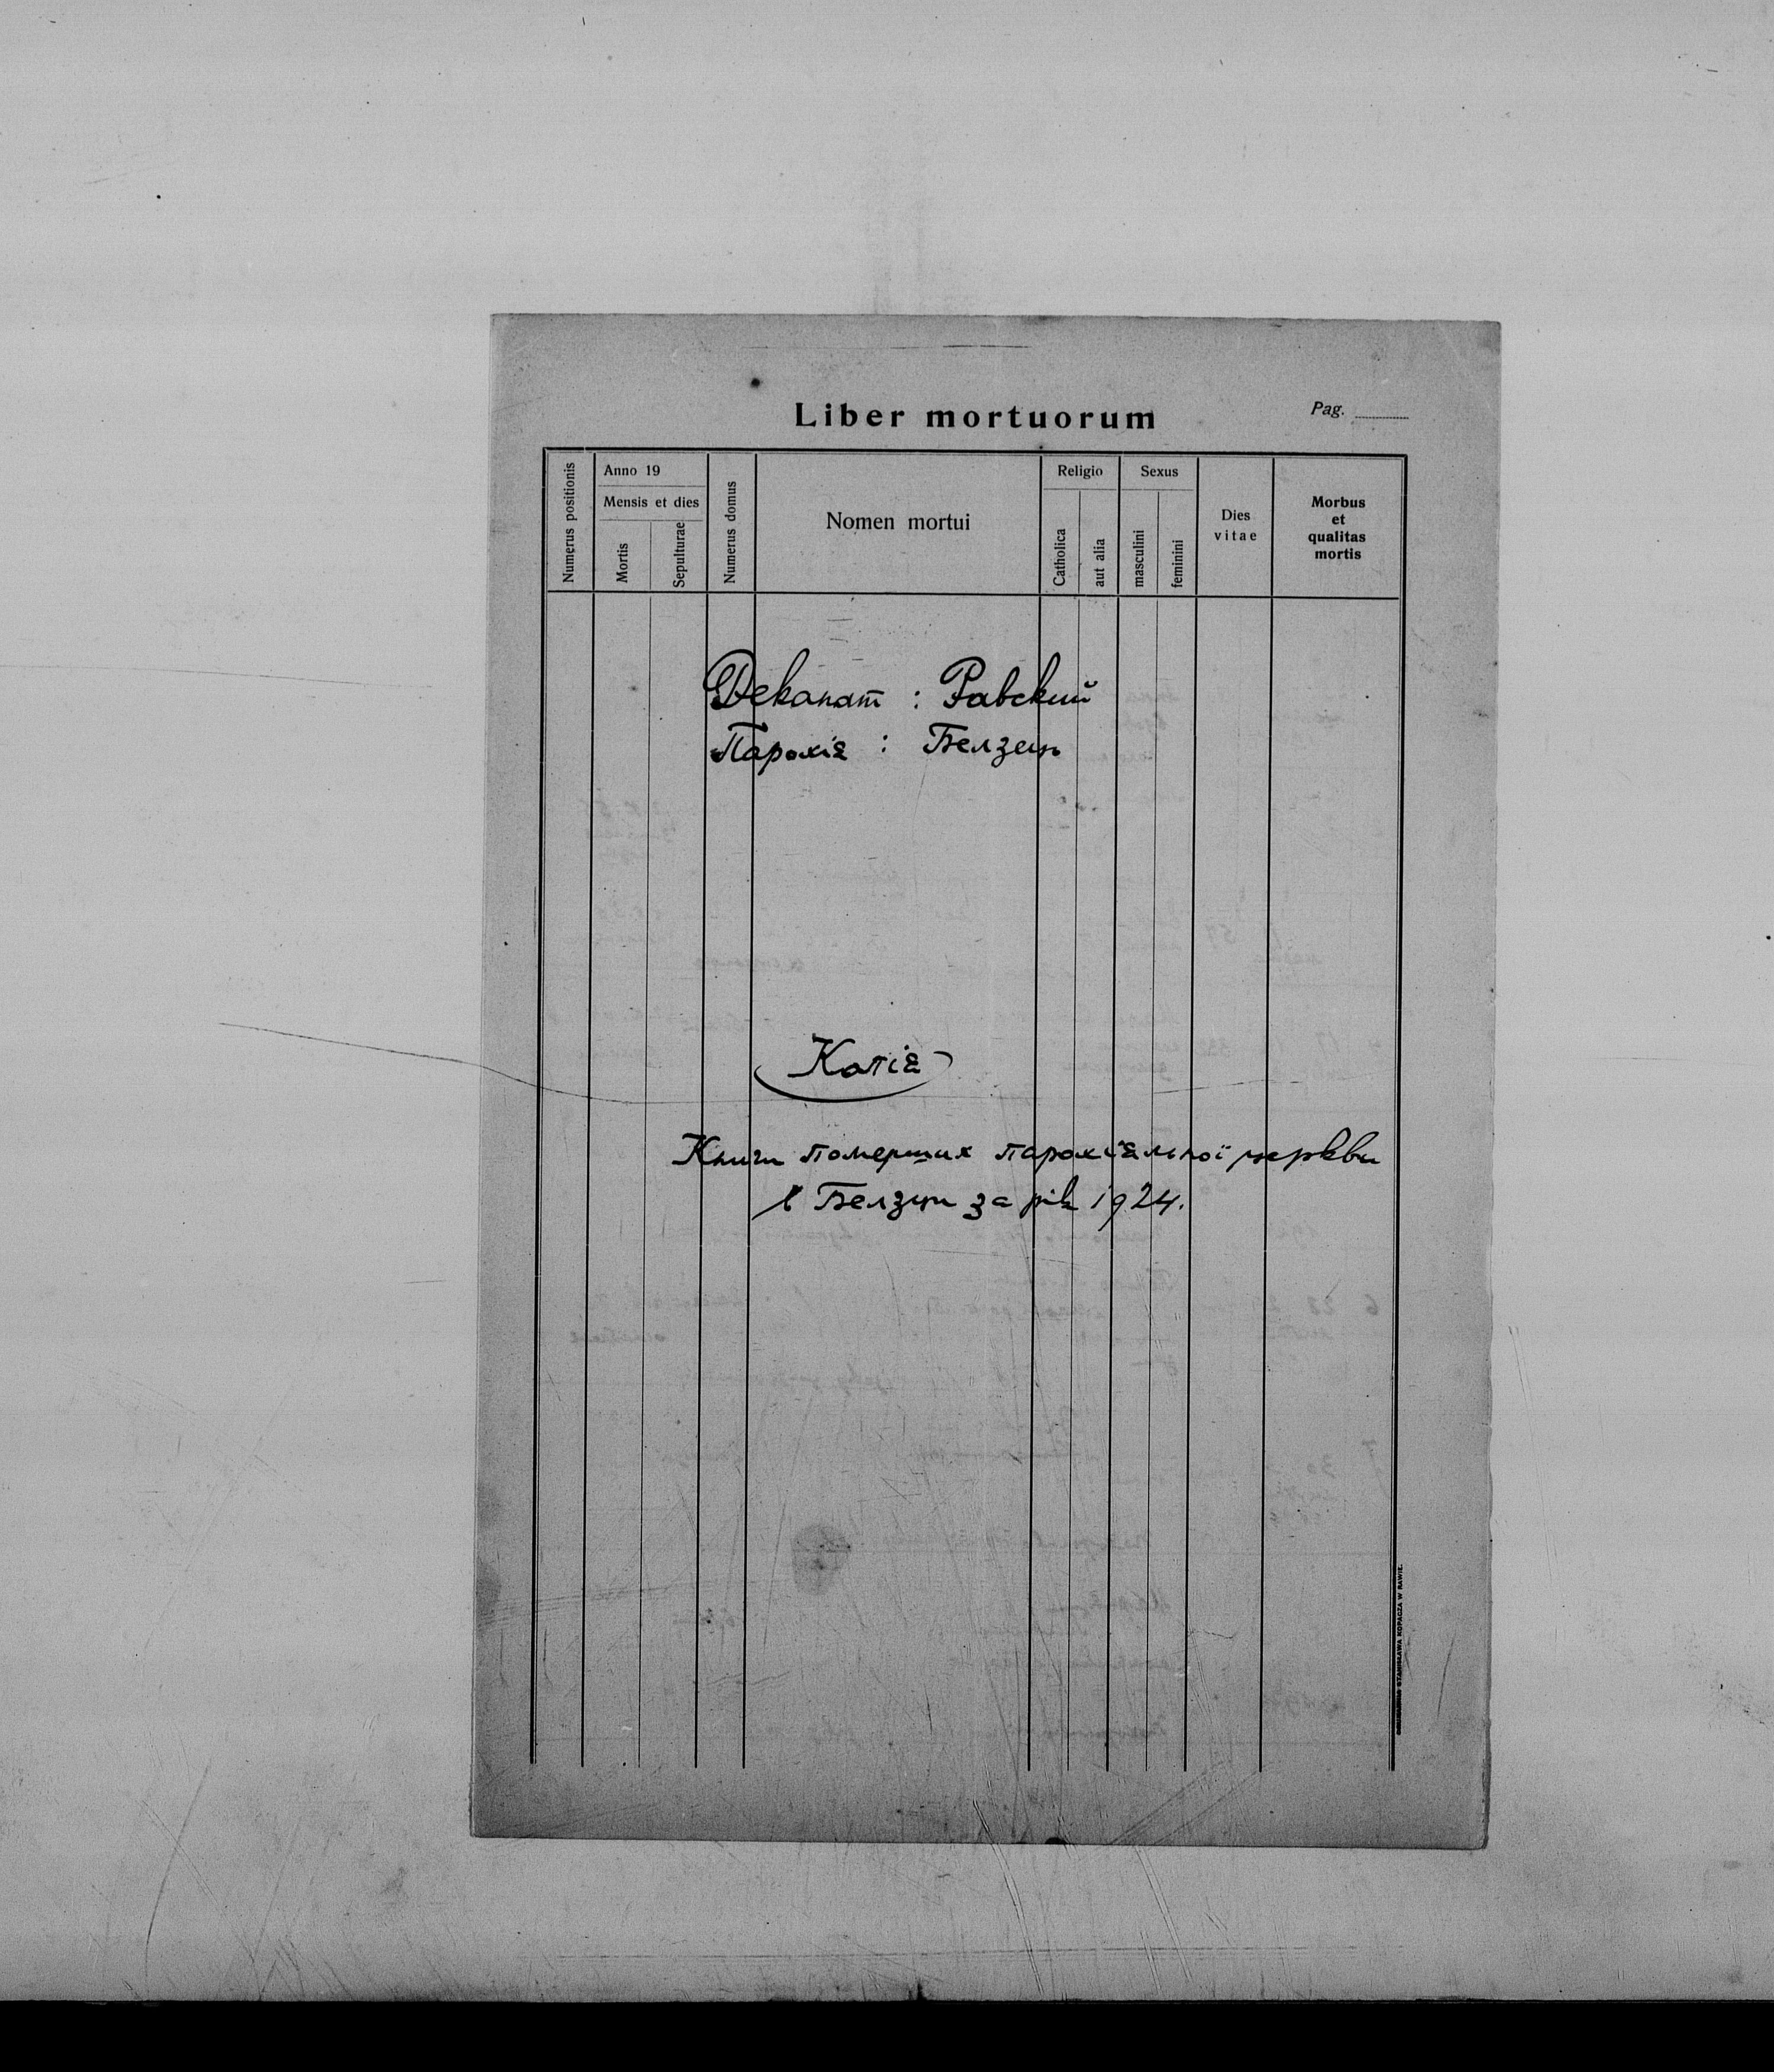 Liber mortuorum
Pag.
Numerus positionis
Anno 19
Mensis et dies
Mortis
Sepulturae
Numerus domus
Nomen mortui
Religio
Catholica
aut alia
Sexus
masculini
feminini
Dies
vitae
Morbus
et
qualitas
mortis
Деканат : Равский
Парохія : Белзець
Копія
Книги померших парохіяльної церкви
в Белзци за рік 1924.
STANISŁAWA KOPACZA W RAWIE.